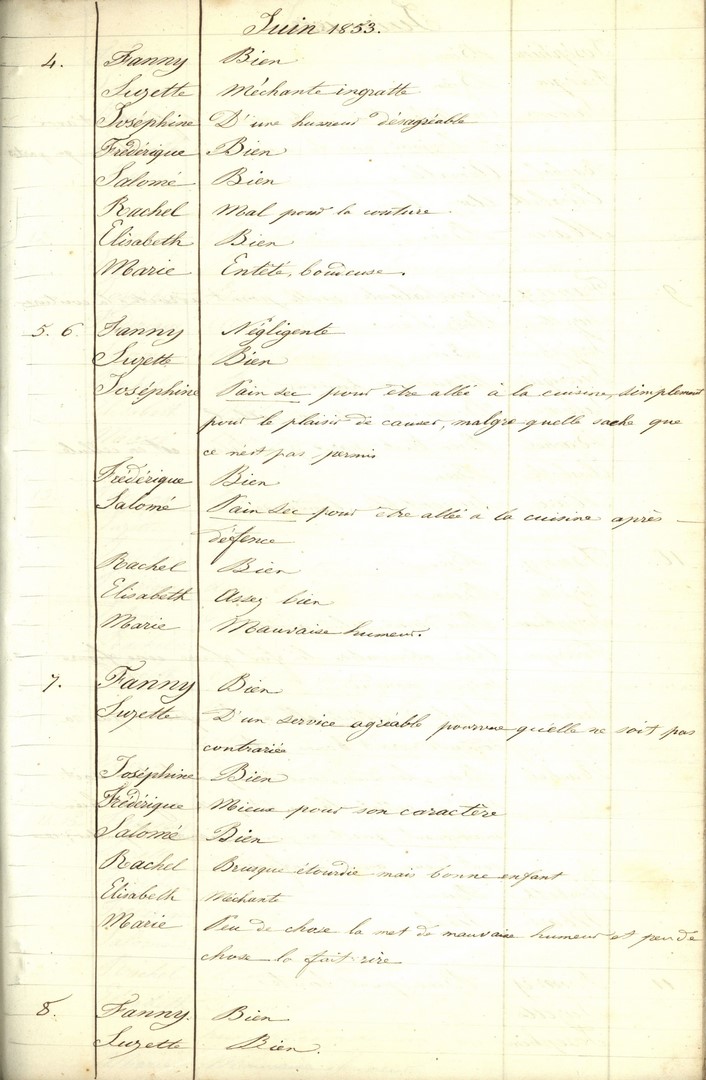 Juin 1853.
4. Fanny Bien
Suzette Méchante ingratte
Joséphine D'une humeur désagréable
Frédérique Bien
Salomé Bien
Rachel Mal pour la couture
Elisabeth Bien
Marie Entêté, boudeuse.
5. 6 Fanny Négligente
Suzette Bien
Joséphine Pain sec pour être allée à la cuisine, simplement
pour le plaisir de causer, malgré quelle sache que
ce n'est pas permis
Frédérique Bien
Salomé Pain sec pour être allée à la cuisine après
défence
Rachel Bien
Elisabeth Assez bien
Marie Mauvaise humeur.
7. Fanny Bien
Suzette D'un service agréable pourvue qu'elle ne soit pas
contrariée
Joséphine Bien
Frédérique Mieux pour son caractère
Salomé Bien
Rachel Brusque étourdie mais bonne enfant
Elisabeth Méchante
Marie Peu de chose la met de mauvaise humeur et peu de
chose la fait rire
8. Fanny. Bien
Suzette Bien.